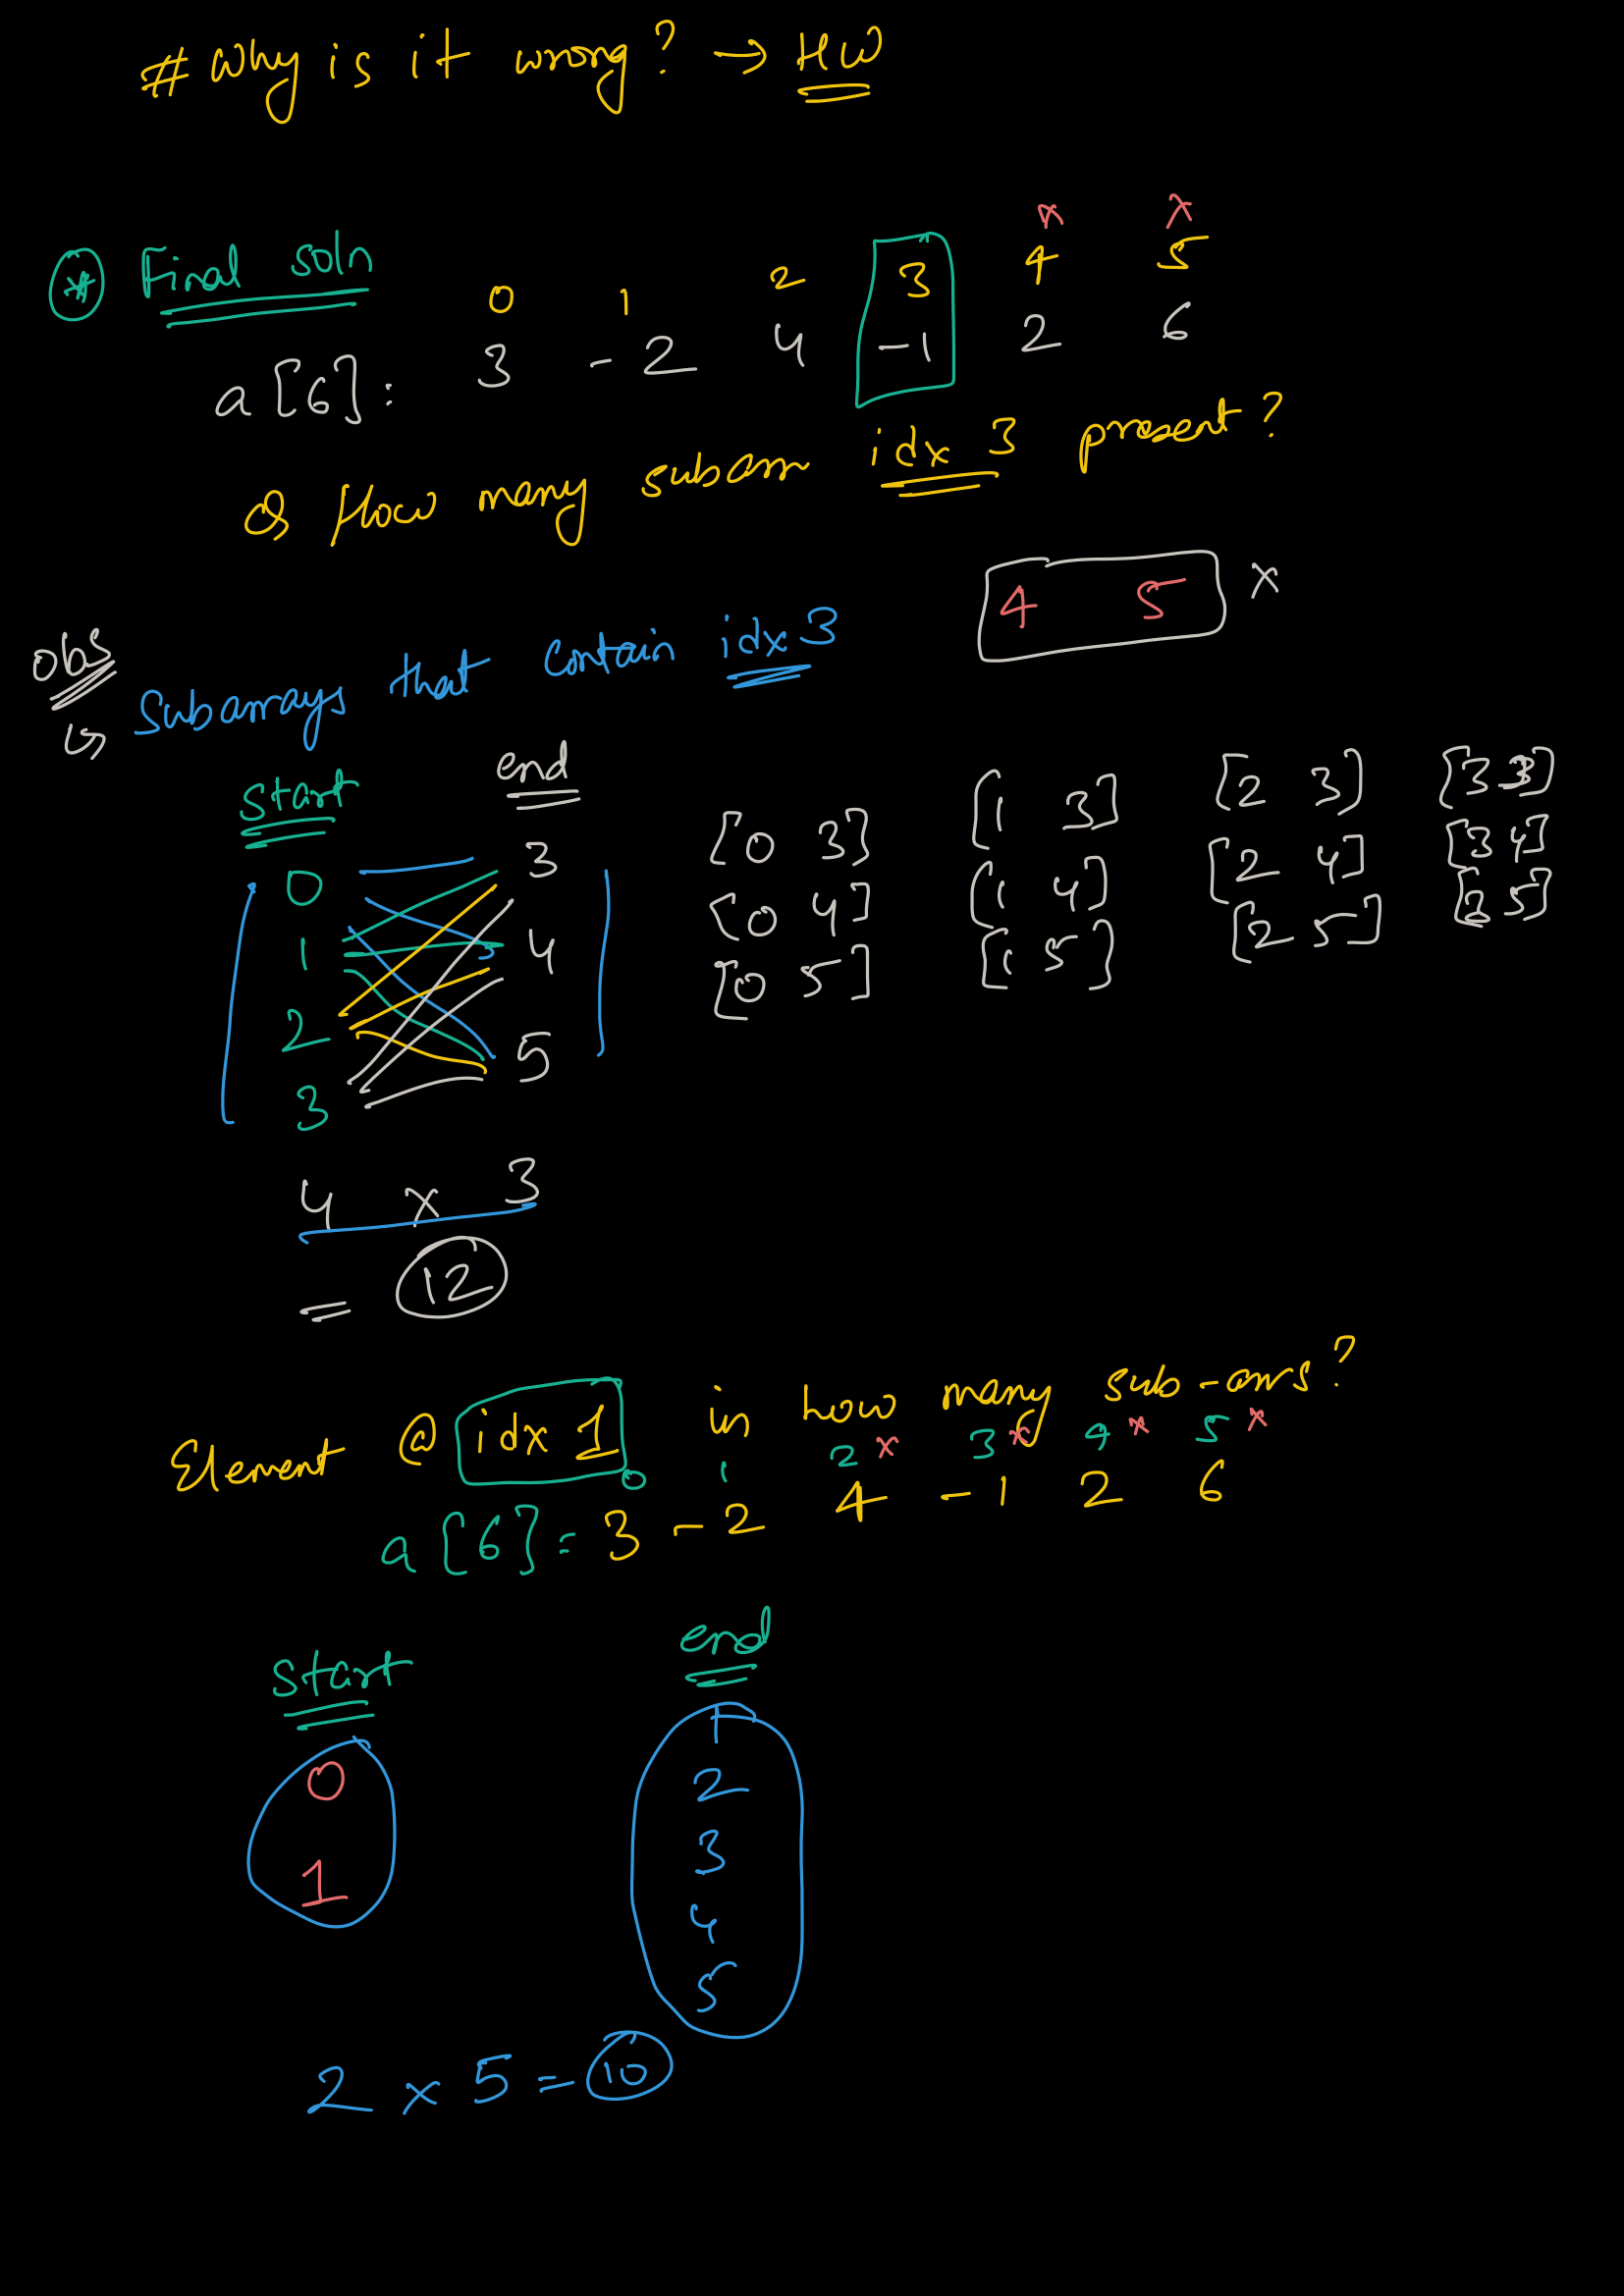 # Why is it wrong? → HW
x x
* Final soln 0 1 2 3 4 5
a[6]: 3 -2 4 -1 2 6
Q How many subarr idx 3 present?
4 5 x
obs
↳ Subarrays that contain idx 3
start end
0 3 [0 3] [1 3] [2 3] [3 3]
1 4 [0 4] [1 4] [2 4] [3 4]
2 5 [0 5] [1 5] [2 5] [3 5]
3
4 x 3
= 12
Element @ idx 1 in how many sub-arrs?
0 1 2 x 3 x 4 x 5 x
a[6]= 3 -2 4 -1 2 6
start end
0 1
1 2
3
4
5
2 x 5 = 10